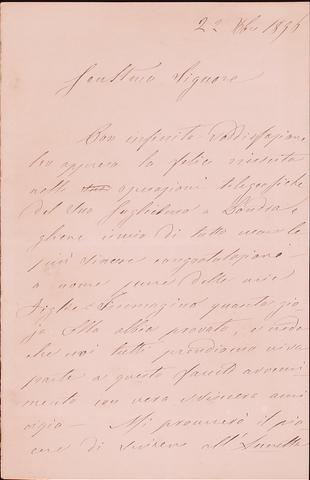 22 Xbre 1896
Gentilmo Signore
Con infinita soddisfazione
ho appreso la felice riuscita
nelle operazioni telegrafiche
del Suo Guglielmo a Londra e
gliene invio di tutto cuore le
più sincere congratulazioni
a nome pure delle mie
figlie. Immagino quanta gio
ja Ella abbia provato, e creda
che noi tutti prendiamo viva
parte a questo fausto avveni
mento con vera e sincera ami
cizia — Mi procurerò il pia
cere di scrivere all'